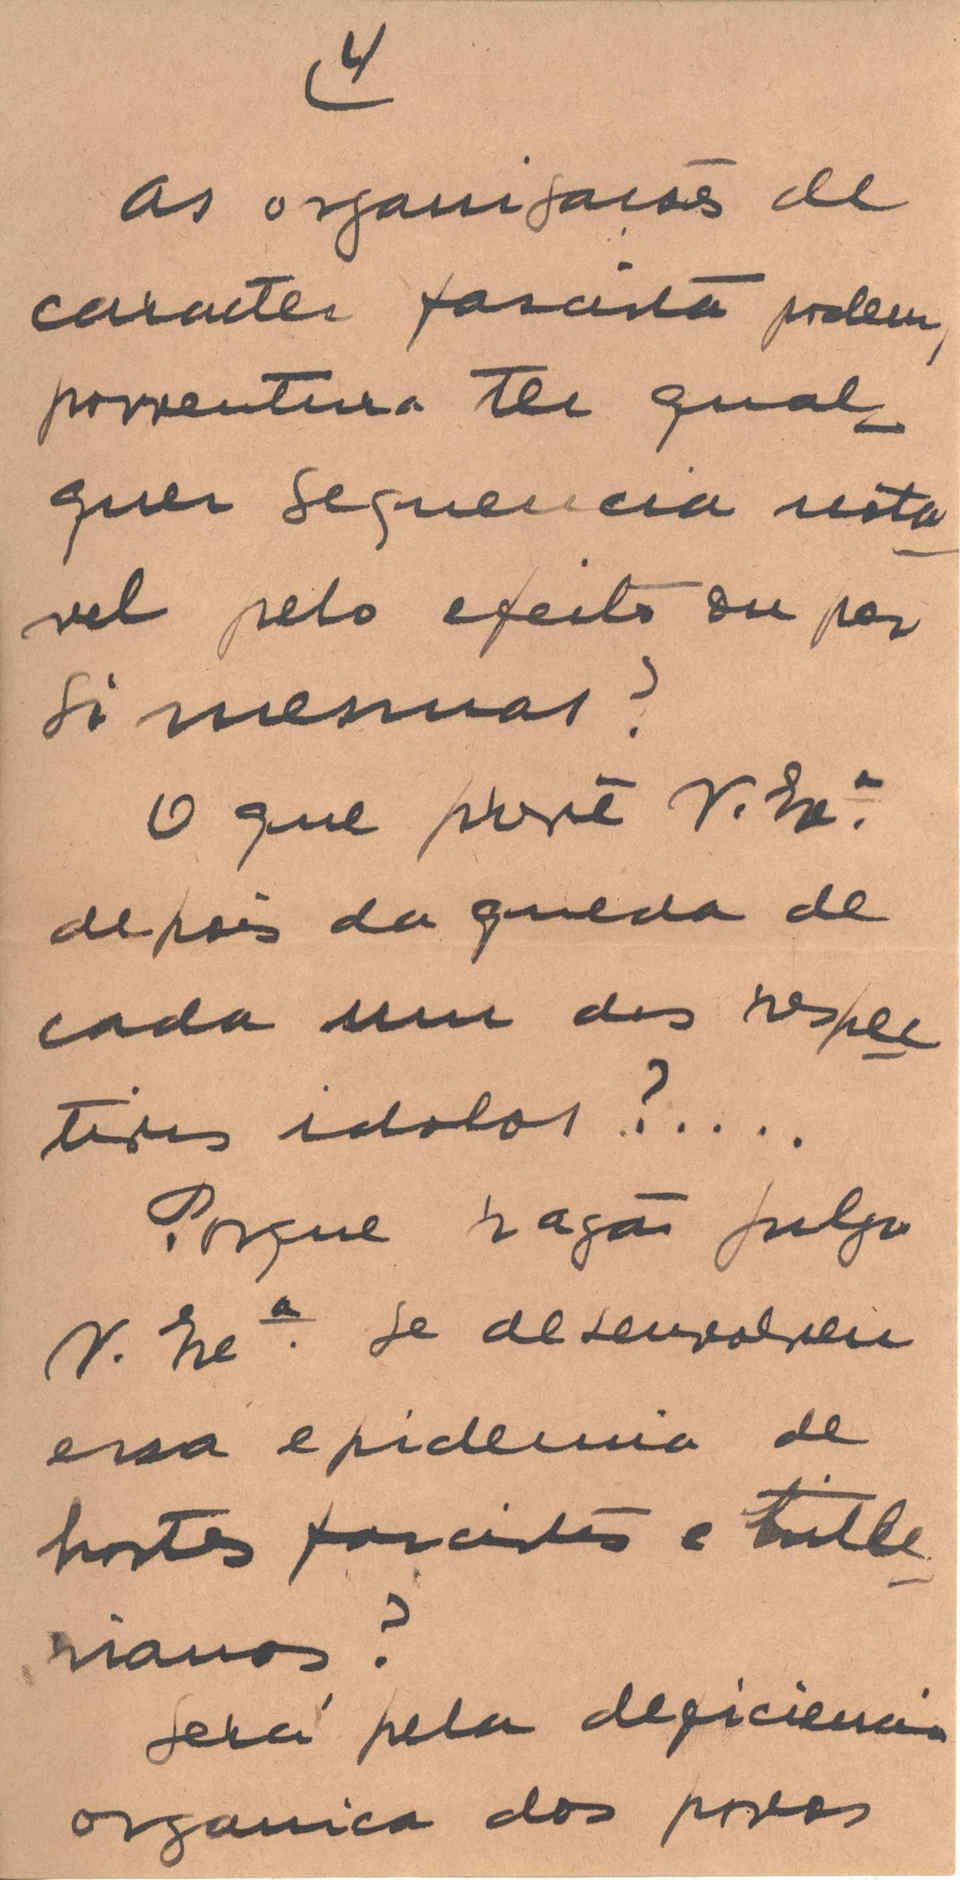 4
As organisacões de
caracter fascista podem,
porventura ter qual-
quer sequencia nota
vel pelo efeito ou por
si mesmas?
O que prevê V. Exª.
depois da queda de
cada um dos respec
tivos idolos?.....
Porque razão julga
V. Exª. se desenvolveu
essa epidemia de
hostes fascistas e hitle
rianos?
Será pela deficiencia
organica dos povos